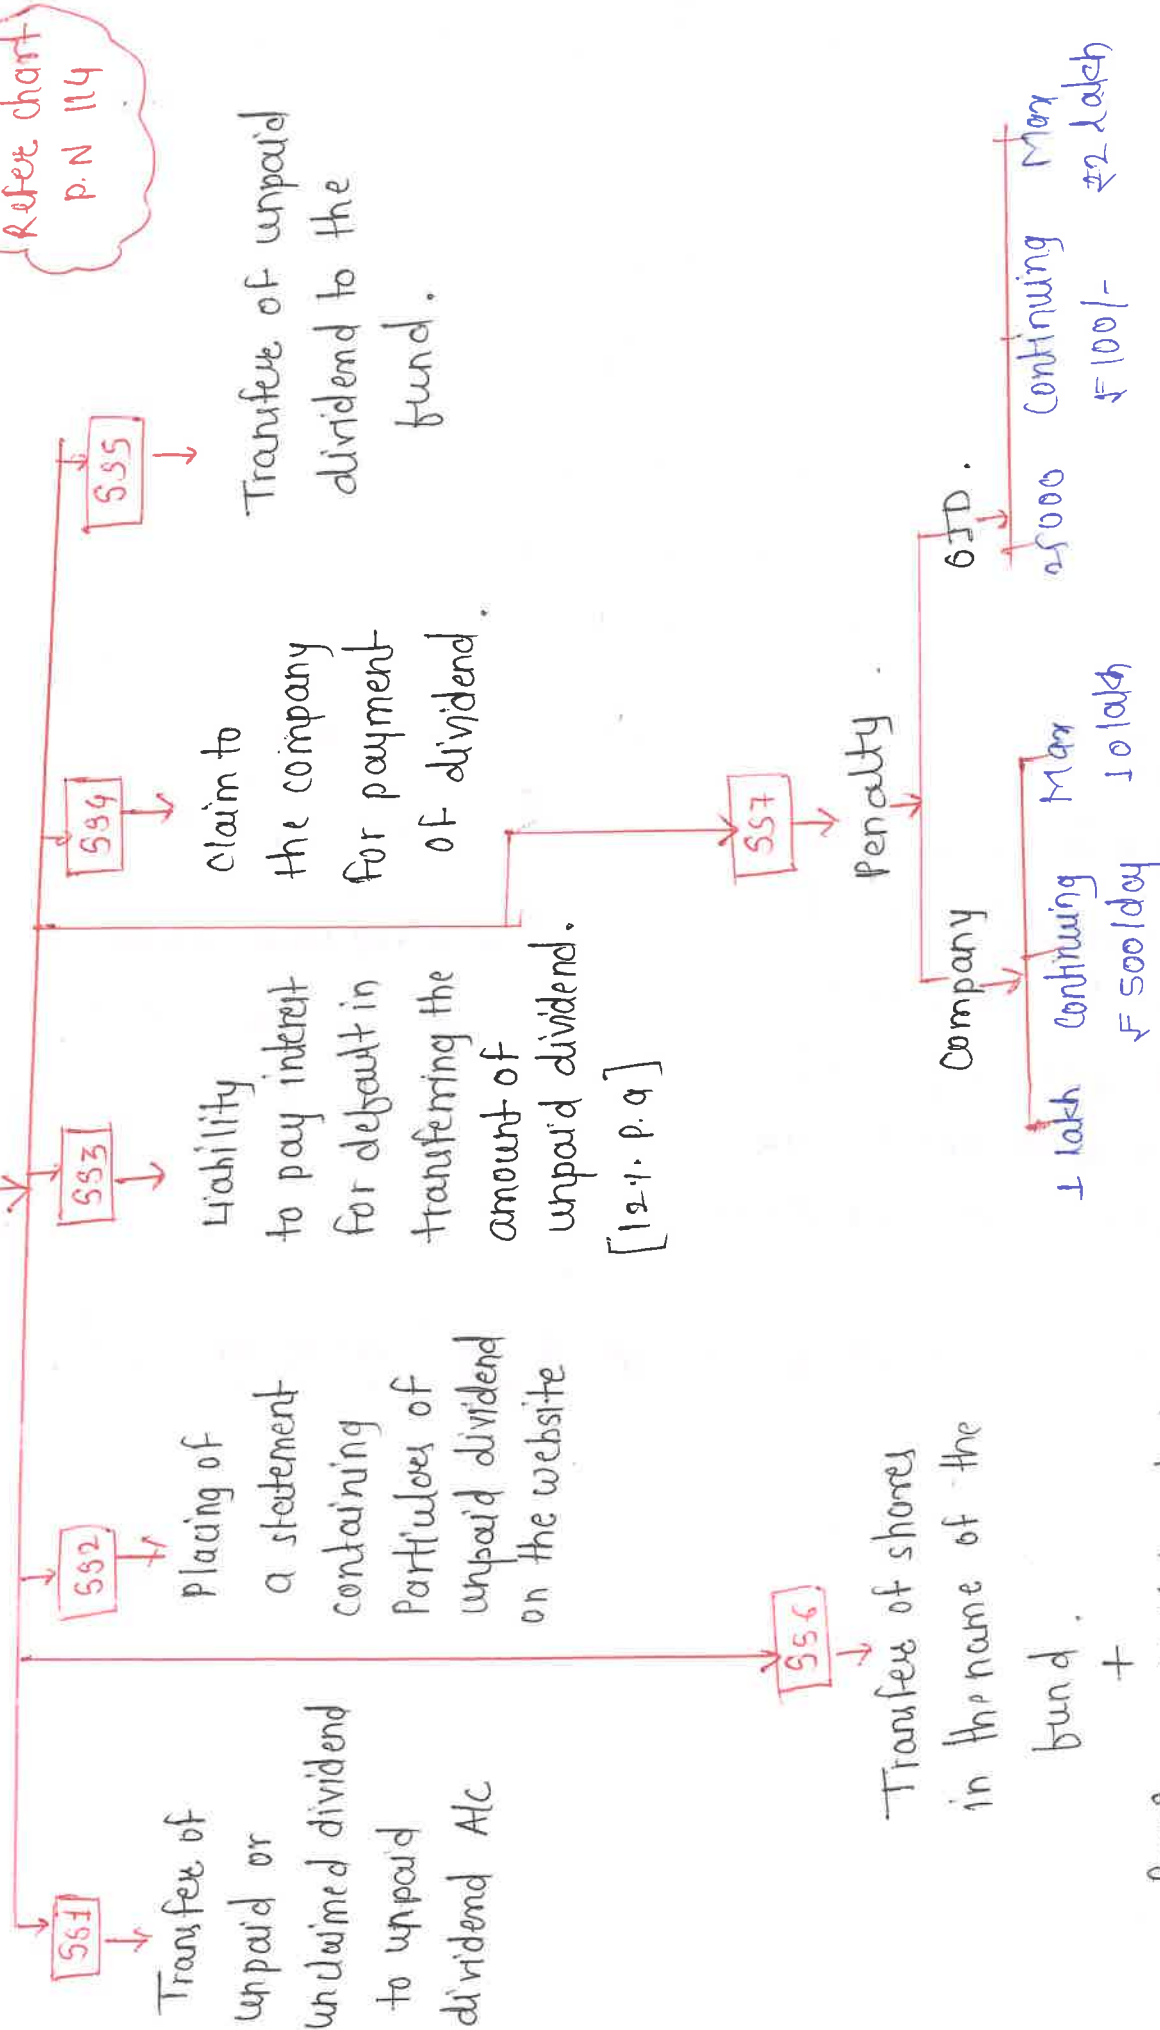 Refer chart
P.N 114
SS1
Transfer of
unpaid or
unclaimed dividend
to unpaid
dividend A/c
SS2
Placing of
a statement
containing
Particulars of
unpaid dividend
on the website
SS3
Liability
to pay interest
for default in
transferring the
amount of
unpaid dividend.
[12%. P.a]
SS4
Claim to
the company
for payment
of dividend.
SS5
Transfer of unpaid
dividend to the
fund.
SS6
Transfer of shares
in the name of the
fund.
+
SS7
Penalty.
Company
1 lakh Continuing Max
₹ 500/day 10 lakh
OID.
25000 Continuing Max
₹ 100/- ₹2 lakh